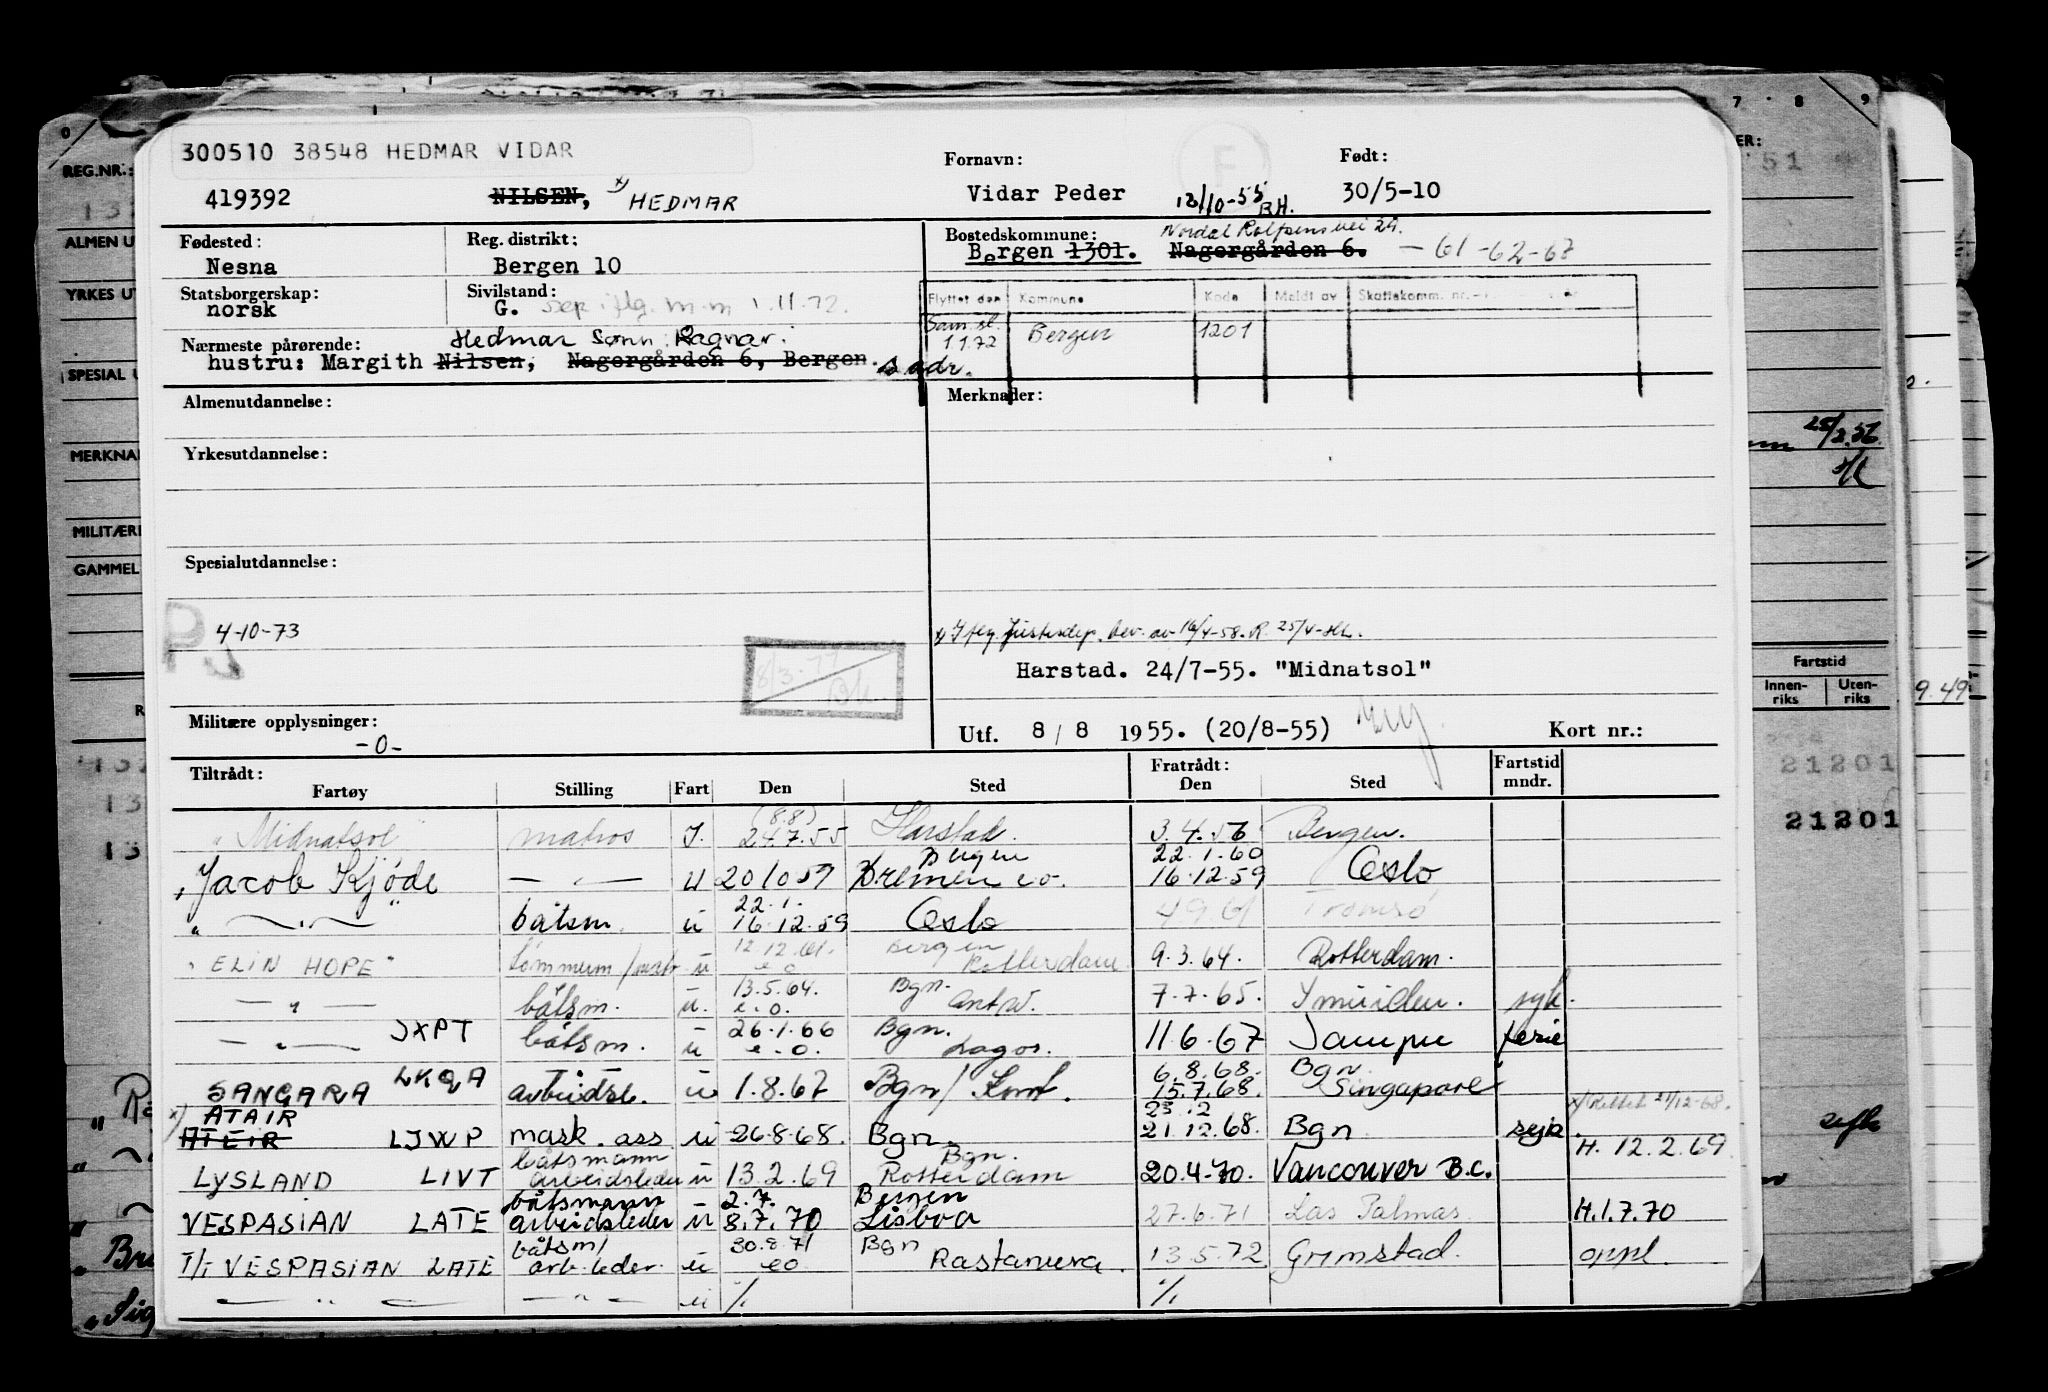 300510 38548 HEDMAR VIDAR
Fornavn: Født:
419392 NILSEN, x) HEDMAR Vidar Peder 12/10-55 RH. 30/5-10
Fødested: Reg. distrikt: Bostedskommune: Nordal Rolfsens vei 29.
Nesna Bergen 10 Bergen 1301. Nagergården 6. - 61-62-67
Statsborgerskap: Sivilstand: Flyttet den Kommune Kode Meldt av Skattekomm. nr.
norsk G. sep. iflg. m.m 1.11.72.
Sam. st. 1.1.72 Bergen 1201
Nærmeste pårørende: Hedmar Sønn: Ragnar.
hustru: Margith Nilsen, Nagergården 6, Bergen. s adr.
Almenutdannelse: Merknader:
Yrkesutdannelse:
Spesialutdannelse:
4-10-73
x) Iflg. Justisdep. bev. av 16/4-58. R. 25/4-
8/3-77
Harstad. 24/7-55. "Midnatsol"
Militære opplysninger: Utf. 8/8 1955. (20/8-55) Kort nr.:
-0-
Tiltrådt: Fratrådt: Fartstid
Fartøy Stilling Fart Den Sted Den Sted mndr.
(8.8)
"Midnatsol" matros I. 24.7.55 Harstad. 3.4.56 Bergen.
Bergen 22.1.60
"Jacob Kjøde" — " — U 20 10 59 Bremen e.o. 16.12.59 Oslo
22.1.
" — " — " båtsm. u 16.12.59 Oslo 4 9 61 Tromsø
12.12.61. Bergen
"ELIN HOPE" tømmerm/matr u e o Rotterdam 9.3.64. Rotterdam.
13.5.64. Bgn.
— " — båtsm. u. e.o. Antw. 7.7.65. Ymuiden. syk.
26.1.66 Bgn.
— " — JXPT båtsm. u e.o. Lagos. 11.6.67 ferie
6.8.68. Bgn.
SANGARA LKQA arbeidsl. u 1.8.67 Bgn/ 15.7.68. Singapore
ATAIR 23.12 x/ Rettet 21/12-68.
x) ATEIR LJWP mask. ass u 26.8.68. Bgn. 21.12.68. Bgn
båtsmann Bgn. H. 12.2.69
LYSLAND LIVT arbeidsleder u 13.2.69 Rotterdam 20.4.70. Vancouver B.C.
båtsmann 2.7. Bergen
VESPASIAN LATE arbeidsleder u 8.7.70 Lisboa 27.6.71 Las Palmas H.1.7.70
båtsm/ 30.8.71 Bgn
T/T VESPASIAN LATE arb.leder. u eo Rastanura. 13.5.72 Grimstad. oppl.
— " — — " — u % %
REG.NR.:
ALMEN U
YRKES UT
SPECIAL U
MERKNA
MILITÆRE
GAMMEL
7 8 9
ER:
51
25/2.56.
Fartstid
Innen-riks Uten-riks
9.49
21201
21201